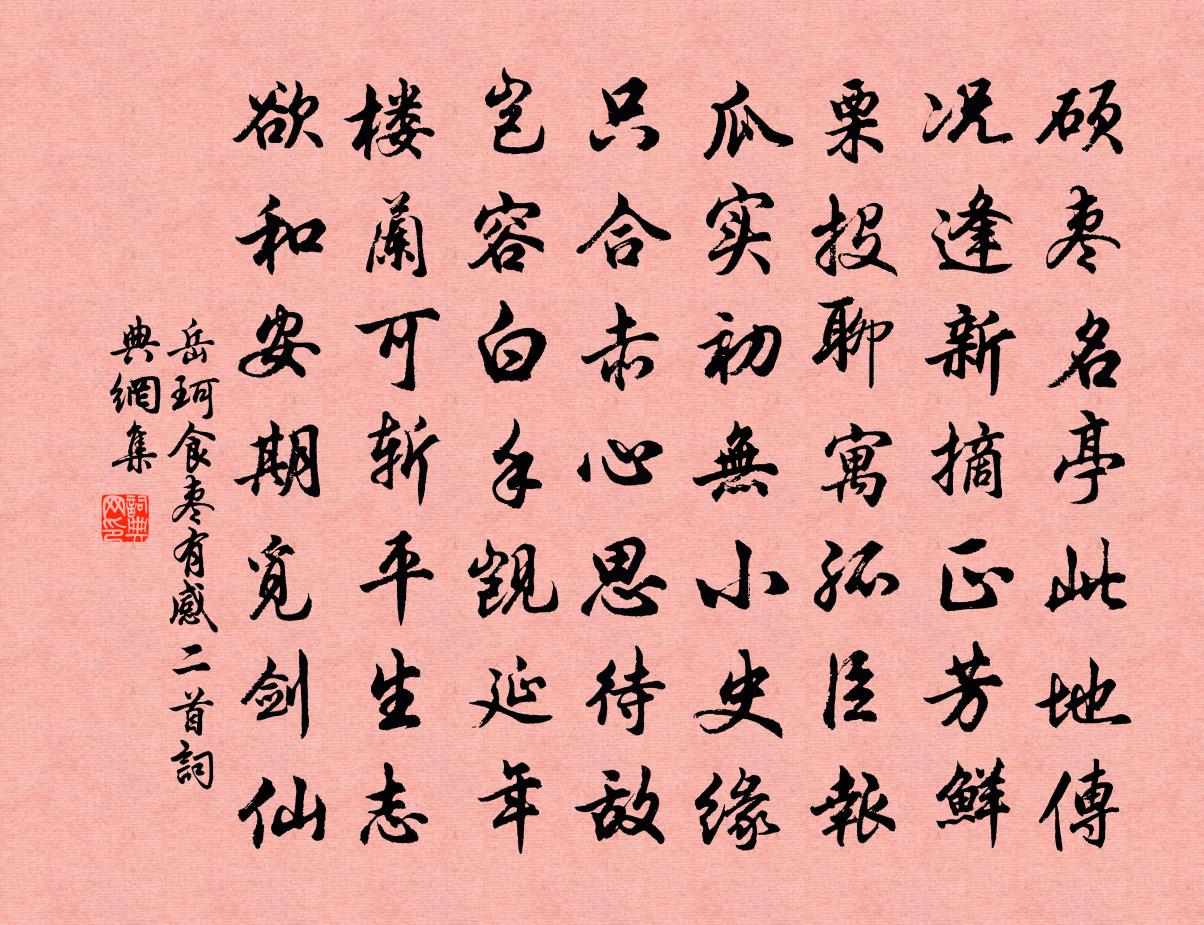 硕枣名亭此地傳
况逢新摘正芳鮮
栗投聊寓孤臣報
瓜实初無小史緣
只合赤心思待敌
岂容白手觊延年
楼蘭可斩平生志
欲和安期觅剑仙
岳珂食枣有感二首詞
典網集
詞典
网印